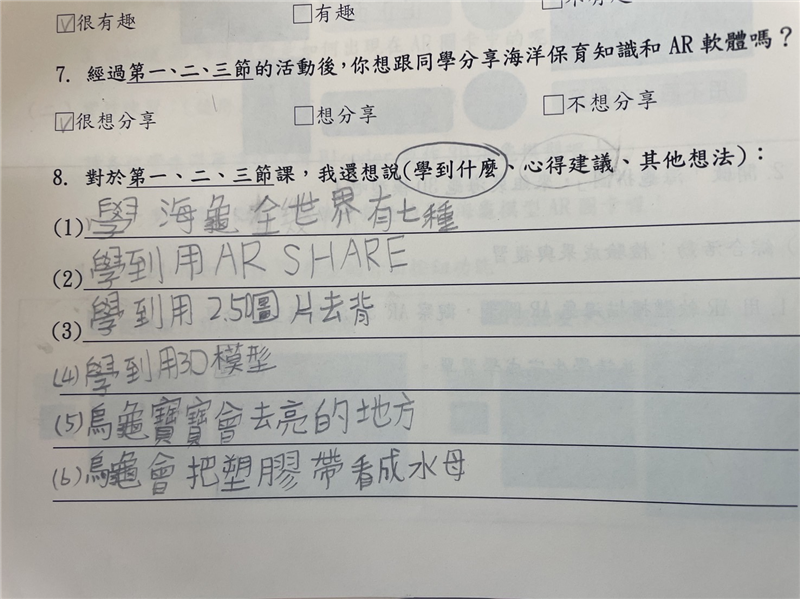 ☑很有趣 □有趣
7. 經過第一、二、三節的活動後，你想跟同學分享海洋保育知識和 AR 軟體嗎？
☑很想分享 □想分享 □不想分享
8. 對於第一、二、三節課，我還想說(學到什麼、心得建議、其他想法)：
(1) 學海龜全世界有七種
(2) 學到用AR SHARE
(3) 學到用2.5D圖片去背
(4) 學到用3D模型
(5) 烏龜寶寶會去亮的地方
(6) 烏龜會把塑膠帶看成水母